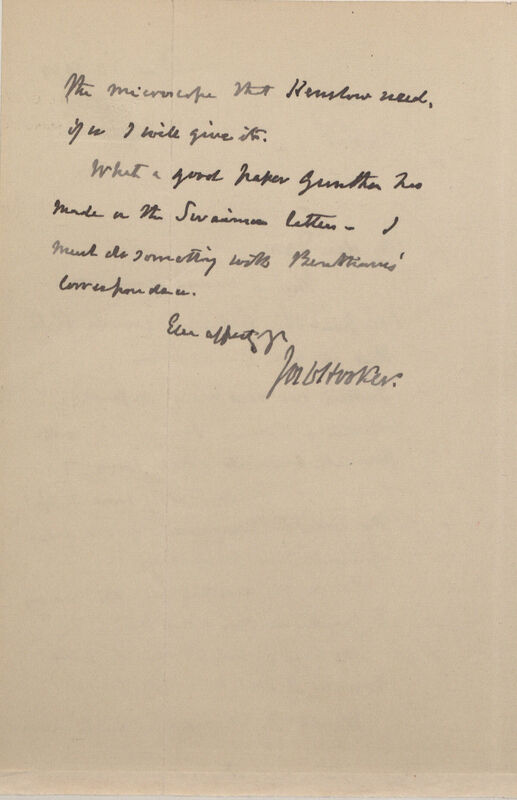 the microscope that Henslow used,
if so I will give it.
What a good paper Gunther has
made on the Swainson letters — I
must do something with Bentham's
correspondence.
Ever affectly yr
Jos D Hooker.